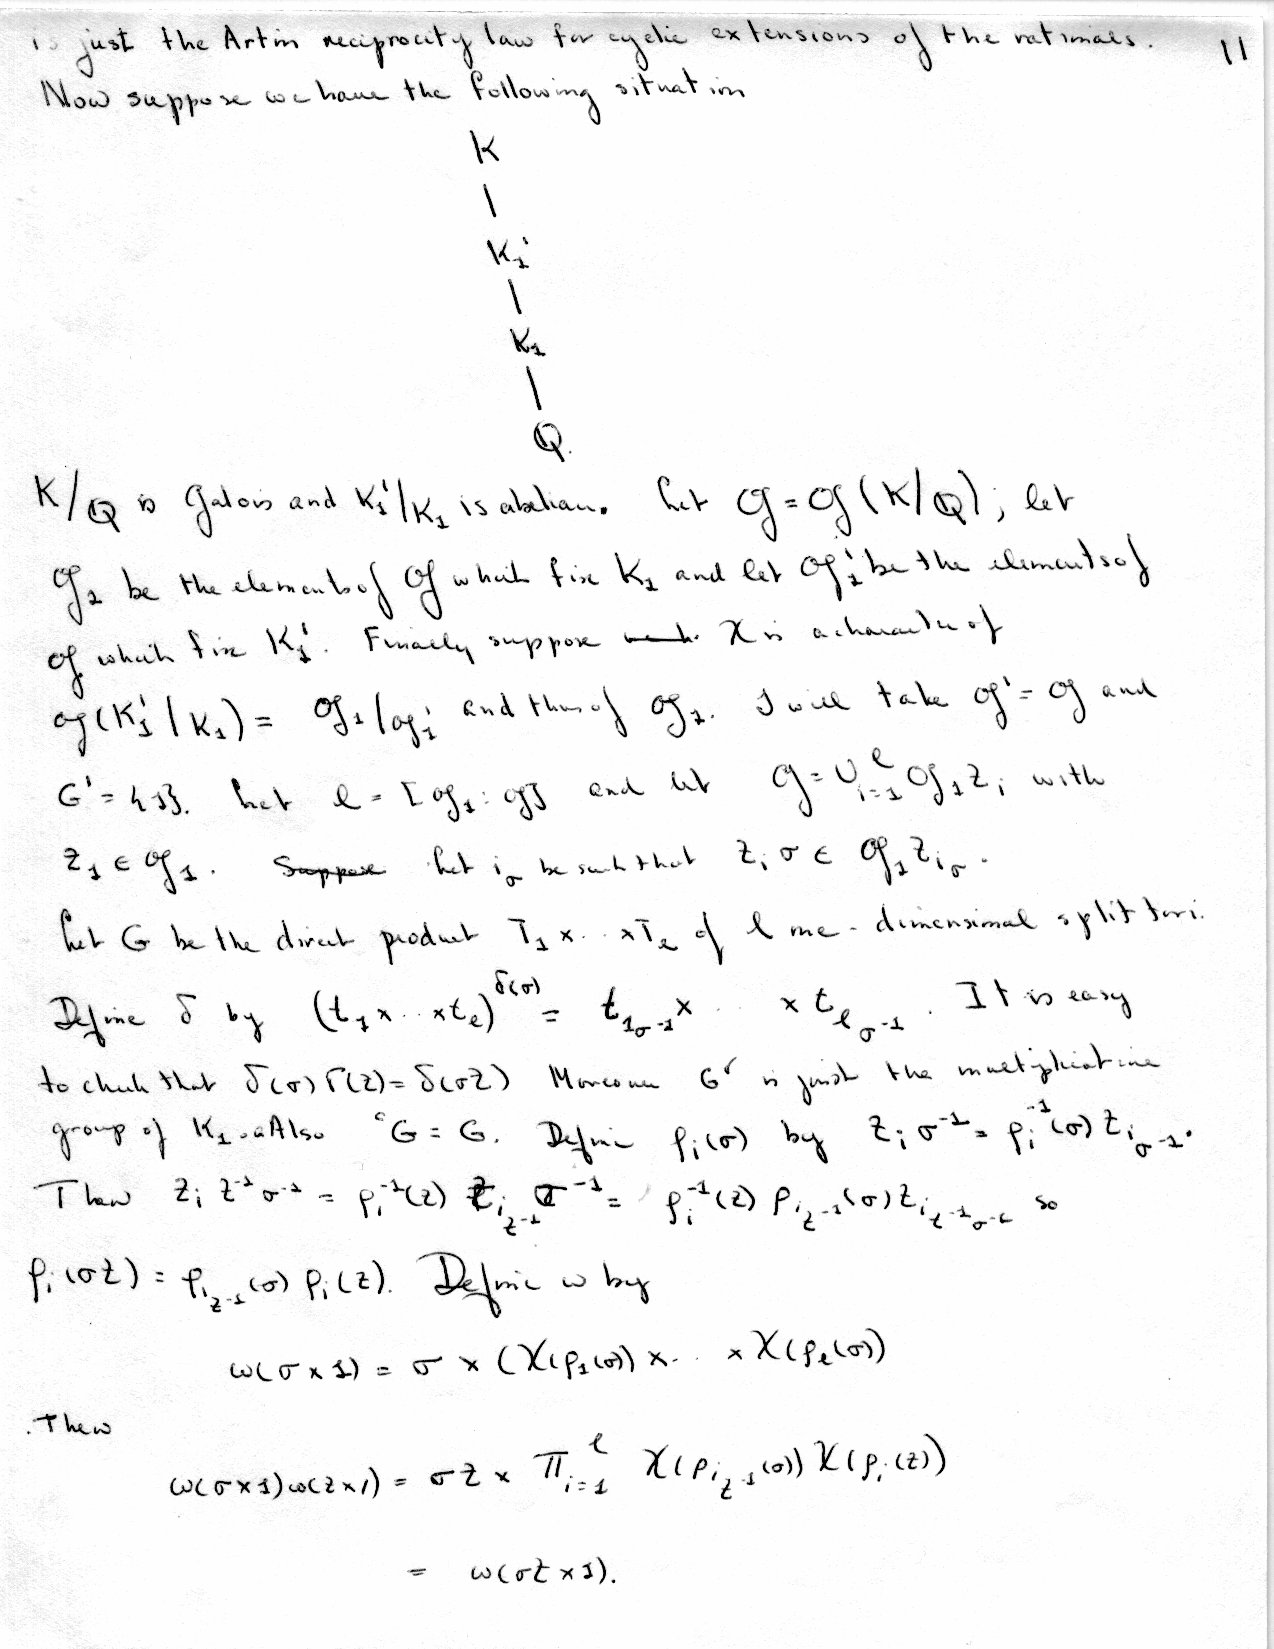 is just the Artin reciprocity law for cyclic extensions of the rationals. 11
Now suppose we have the following situation
K
|
K₁'
|
K₁
|
Q.
K/Q is Galois and K₁'/K₁ is abelian. Let 𝔤 = 𝔤(K/Q); let
𝔤₁ be the elements of 𝔤 which fix K₁ and let 𝔤₁' be the elements of
𝔤 which fix K₁'. Finally suppose χ is a character of
𝔤(K₁'/K₁) = 𝔤₁/𝔤₁' and thus of 𝔤₁. I will take 𝔤' = 𝔤 and
G' = {1}. Let l = [𝔤₁ : 𝔤] and let 𝔤 = ∪_{i=1}^{l} 𝔤₁τ_i with
τ₁ ∈ 𝔤₁. Suppose Let i_σ be such that τ_i σ ∈ 𝔤₁τ_{i_σ}.
Let G be the direct product T₁ × .. × T_l of l one-dimensional split tori.
Define δ by (t₁ × .. × t_l)^{δ(σ)} = t_{1_{σ⁻¹}} × .. × t_{l_{σ⁻¹}}. It is easy
to check that δ(σ)δ(τ) = δ(στ) Moreover G^δ is just the multiplicative
group of K₁. Also ᶜG = G. Define ρ_i(σ) by τ_i σ⁻¹ = ρ_i⁻¹(σ) τ_{i_{σ⁻¹}}.
Then τ_i τ⁻¹σ⁻¹ = ρ_i⁻¹(τ) τ_{i_{τ⁻¹}} σ⁻¹ = ρ_i⁻¹(τ) ρ_{i_{τ⁻¹}}(σ) τ_{i_{τ⁻¹σ⁻¹}} so
ρ_i(στ) = ρ_{i_{τ⁻¹}}(σ) ρ_i(τ). Define ω by
ω(σ × 1) = σ × (χ(ρ₁(σ)) × .. × χ(ρ_l(σ))
. Then
ω(σ×1)ω(τ×1) = στ × ∏_{i=1}^{l} χ(ρ_{i_{τ⁻¹}}(σ)) χ(ρ_i(τ))
= ω(στ × 1).